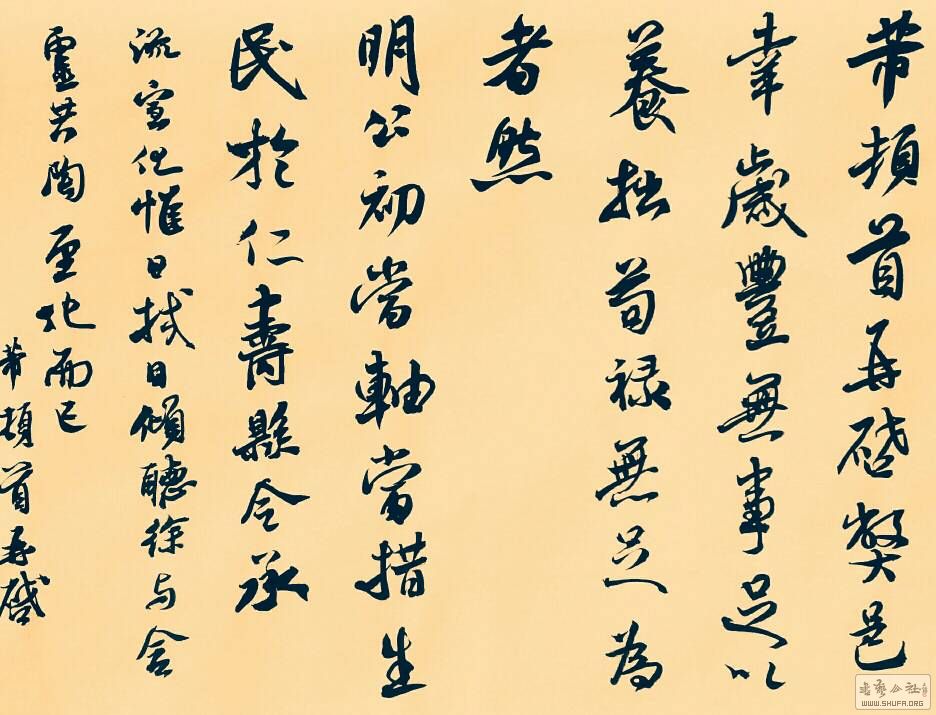 芾頓首再啓弊邑
幸歲豐無事足以
養拙苟祿無足爲
者然
明公初當軸當措生
民於仁壽縣令承
流宣化惟日拭目傾聽徐與含
靈共陶至化而已
芾頓首再啓
書藝公社
WWW.SHUFA.ORG